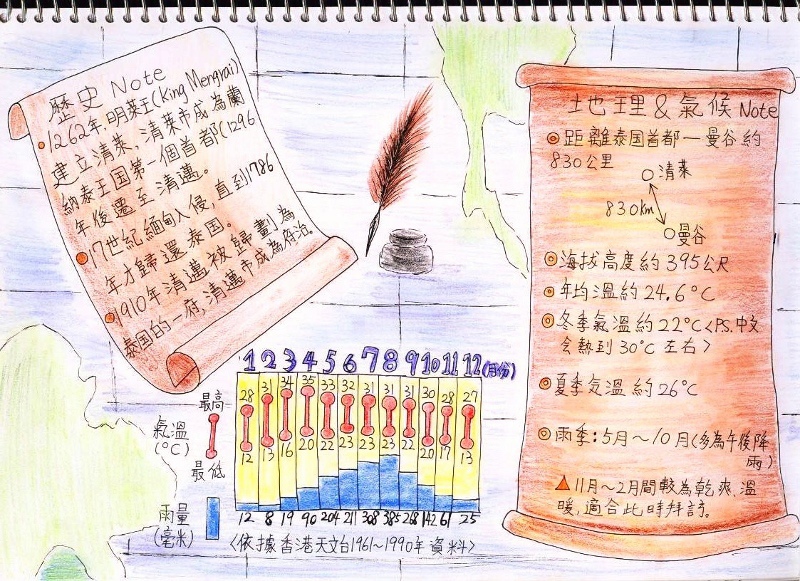 歷史 Note
1262年,明萊王(King Mengrai)
建立清萊、清萊市成為蘭
納泰王国第一個首都(1296
年後遷至清邁。
17世紀緬甸入侵,直到1786
年才歸還泰国。
1910年清邁被歸劃為
泰国的一府,清邁市成為府治。
地理&氣候 Note
距離泰国首都—曼谷約
830公里
清萊
830km
曼谷
海拔高度約395公尺
年均溫約24.6°C
冬季氣溫約22°C<PS.中文
会熱到30°C左右>
夏季気溫約26°C
雨季:5月~10月(多為午後降
雨)
11月~2月間較為乾爽、溫
暖,適合此時拜訪。
1 2 3 4 5 6 7 8 9 10 11 12(月份)
最高
氣溫
(°C)
最低
28 31 34 35 33 32 31 31 31 30 28 27
12 13 16 20 22 23 23 23 22 20 17 13
雨量
(毫米)
12 8 19 90 204 211 308 385 268 142 61 25
<依據香港天文台1961~1990年資料>